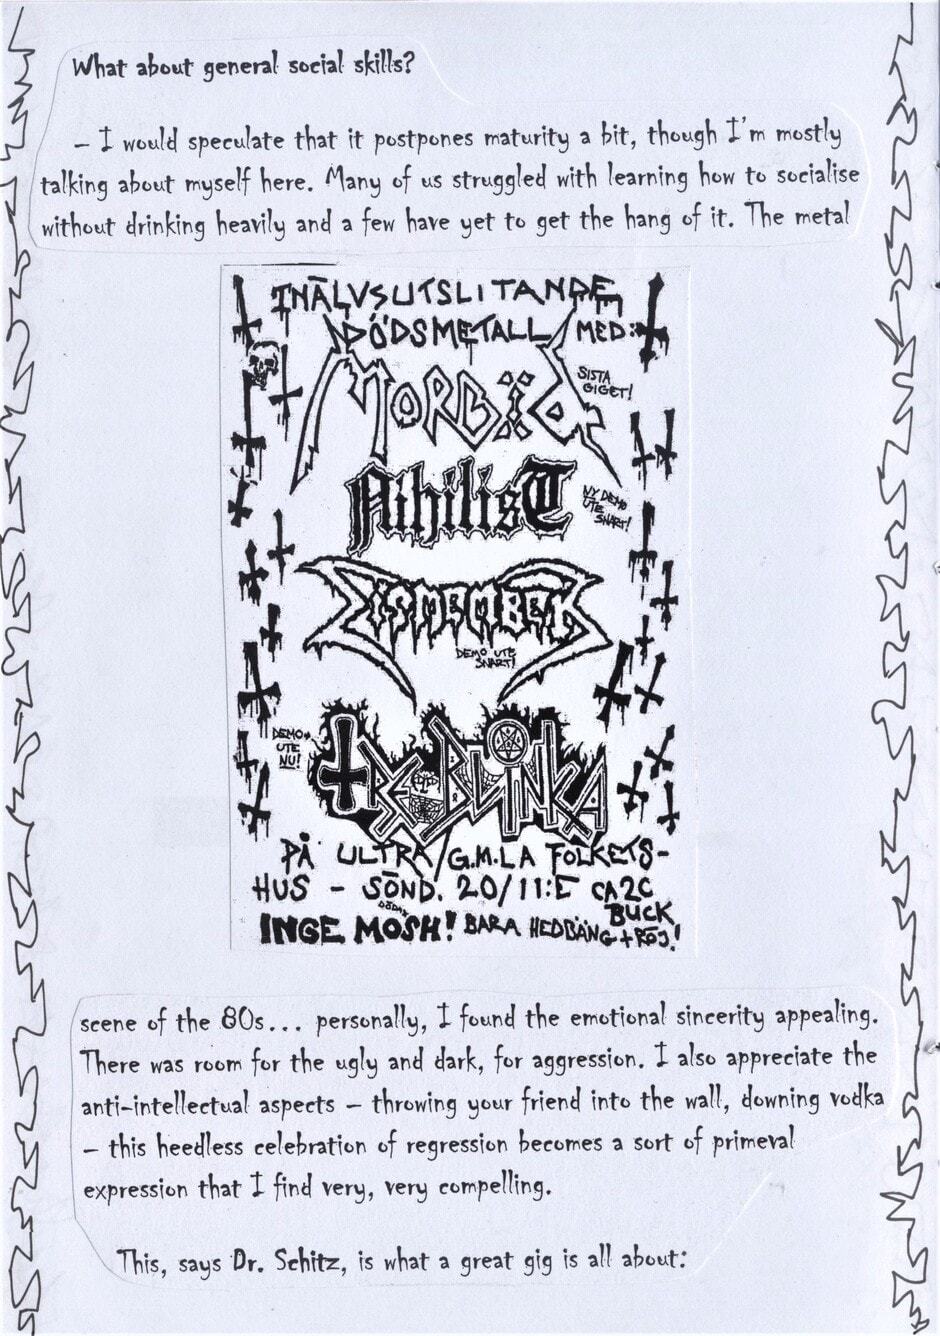 What about general social skills?
– I would speculate that it postpones maturity a bit, though I'm mostly
talking about myself here. Many of us struggled with learning how to socialise
without drinking heavily and a few have yet to get the hang of it. The metal
INÄLVSUTSLITANDE
DÖDSMETALL MED:
MORBID
SISTA
GIGET!
NihilisT
NY DEMO
UTE
SNART!
DISMEMBER
DEMO UTE
SNART!
DEMO
UTE
NU!
TREBLINKA
PÅ ULTRA/G:MLA FOLKETS-
HUS – SÖND. 20/11:E CA 20
BUCK
DÖDAR
INGE MOSH! BARA HEDBÄNG + RÖJ!
scene of the 80s... personally, I found the emotional sincerity appealing.
There was room for the ugly and dark, for aggression. I also appreciate the
anti-intellectual aspects – throwing your friend into the wall, downing vodka
– this heedless celebration of regression becomes a sort of primeval
expression that I find very, very compelling.
This, says Dr. Schitz, is what a great gig is all about: